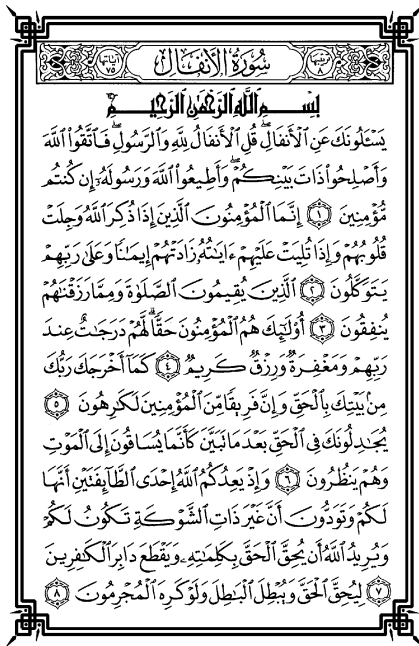 ترتيبها ٨ سُورَةُ الأَنفَالِ آياتها ٧٥
بِسْمِ اللَّهِ الرَّحْمَٰنِ الرَّحِيمِ
يَسْـَٔلُونَكَ عَنِ ٱلْأَنفَالِۖ قُلِ ٱلْأَنفَالُ لِلَّهِ وَٱلرَّسُولِۖ فَٱتَّقُوا۟ ٱللَّهَ
وَأَصْلِحُوا۟ ذَاتَ بَيْنِكُمْۖ وَأَطِيعُوا۟ ٱللَّهَ وَرَسُولَهُۥٓ إِن كُنتُم
مُّؤْمِنِينَ ١ إِنَّمَا ٱلْمُؤْمِنُونَ ٱلَّذِينَ إِذَا ذُكِرَ ٱللَّهُ وَجِلَتْ
قُلُوبُهُمْ وَإِذَا تُلِيَتْ عَلَيْهِمْ ءَايَٰتُهُۥ زَادَتْهُمْ إِيمَٰنًا وَعَلَىٰ رَبِّهِمْ
يَتَوَكَّلُونَ ٢ ٱلَّذِينَ يُقِيمُونَ ٱلصَّلَوٰةَ وَمِمَّا رَزَقْنَٰهُمْ
يُنفِقُونَ ٣ أُو۟لَٰٓئِكَ هُمُ ٱلْمُؤْمِنُونَ حَقًّاۚ لَّهُمْ دَرَجَٰتٌ عِندَ
رَبِّهِمْ وَمَغْفِرَةٌ وَرِزْقٌ كَرِيمٌ ٤ كَمَآ أَخْرَجَكَ رَبُّكَ
مِنۢ بَيْتِكَ بِٱلْحَقِّ وَإِنَّ فَرِيقًا مِّنَ ٱلْمُؤْمِنِينَ لَكَٰرِهُونَ ٥
يُجَٰدِلُونَكَ فِى ٱلْحَقِّ بَعْدَ مَا تَبَيَّنَ كَأَنَّمَا يُسَاقُونَ إِلَى ٱلْمَوْتِ
وَهُمْ يَنظُرُونَ ٦ وَإِذْ يَعِدُكُمُ ٱللَّهُ إِحْدَى ٱلطَّآئِفَتَيْنِ أَنَّهَا
لَكُمْ وَتَوَدُّونَ أَنَّ غَيْرَ ذَاتِ ٱلشَّوْكَةِ تَكُونُ لَكُمْ
وَيُرِيدُ ٱللَّهُ أَن يُحِقَّ ٱلْحَقَّ بِكَلِمَٰتِهِۦ وَيَقْطَعَ دَابِرَ ٱلْكَٰفِرِينَ
٧ لِيُحِقَّ ٱلْحَقَّ وَيُبْطِلَ ٱلْبَٰطِلَ وَلَوْ كَرِهَ ٱلْمُجْرِمُونَ ٨